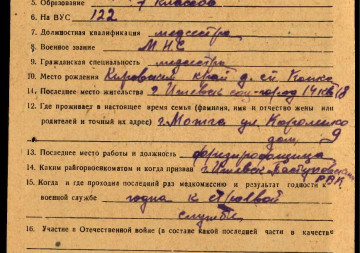 5. Образование 7 классов
6. На ВУС 122
7. Должностная квалификация медсестра
8. Военное звание М Н С
9. Гражданская специальность медсестра
10. Место рождения Кировский край д. ст.
11. Последнее место жительства г. Ижевск соц-город 14 кв 18
12. Где проживает в настоящее время семья (фамилия, имя и отчество жены или
родителей и точный их адрес) г. Можга ул.
дом. 9
13. Последнее место работы и должность
14. Каким райгорвоенкоматом и когда призван г. Ижевск Пастуховским
РВК
15. Когда и где проходил последний раз медкомиссию и результат годности к
военной службе годна к строевой
службе
16. Участие в Отечественной войне (в составе какой последней части в качестве